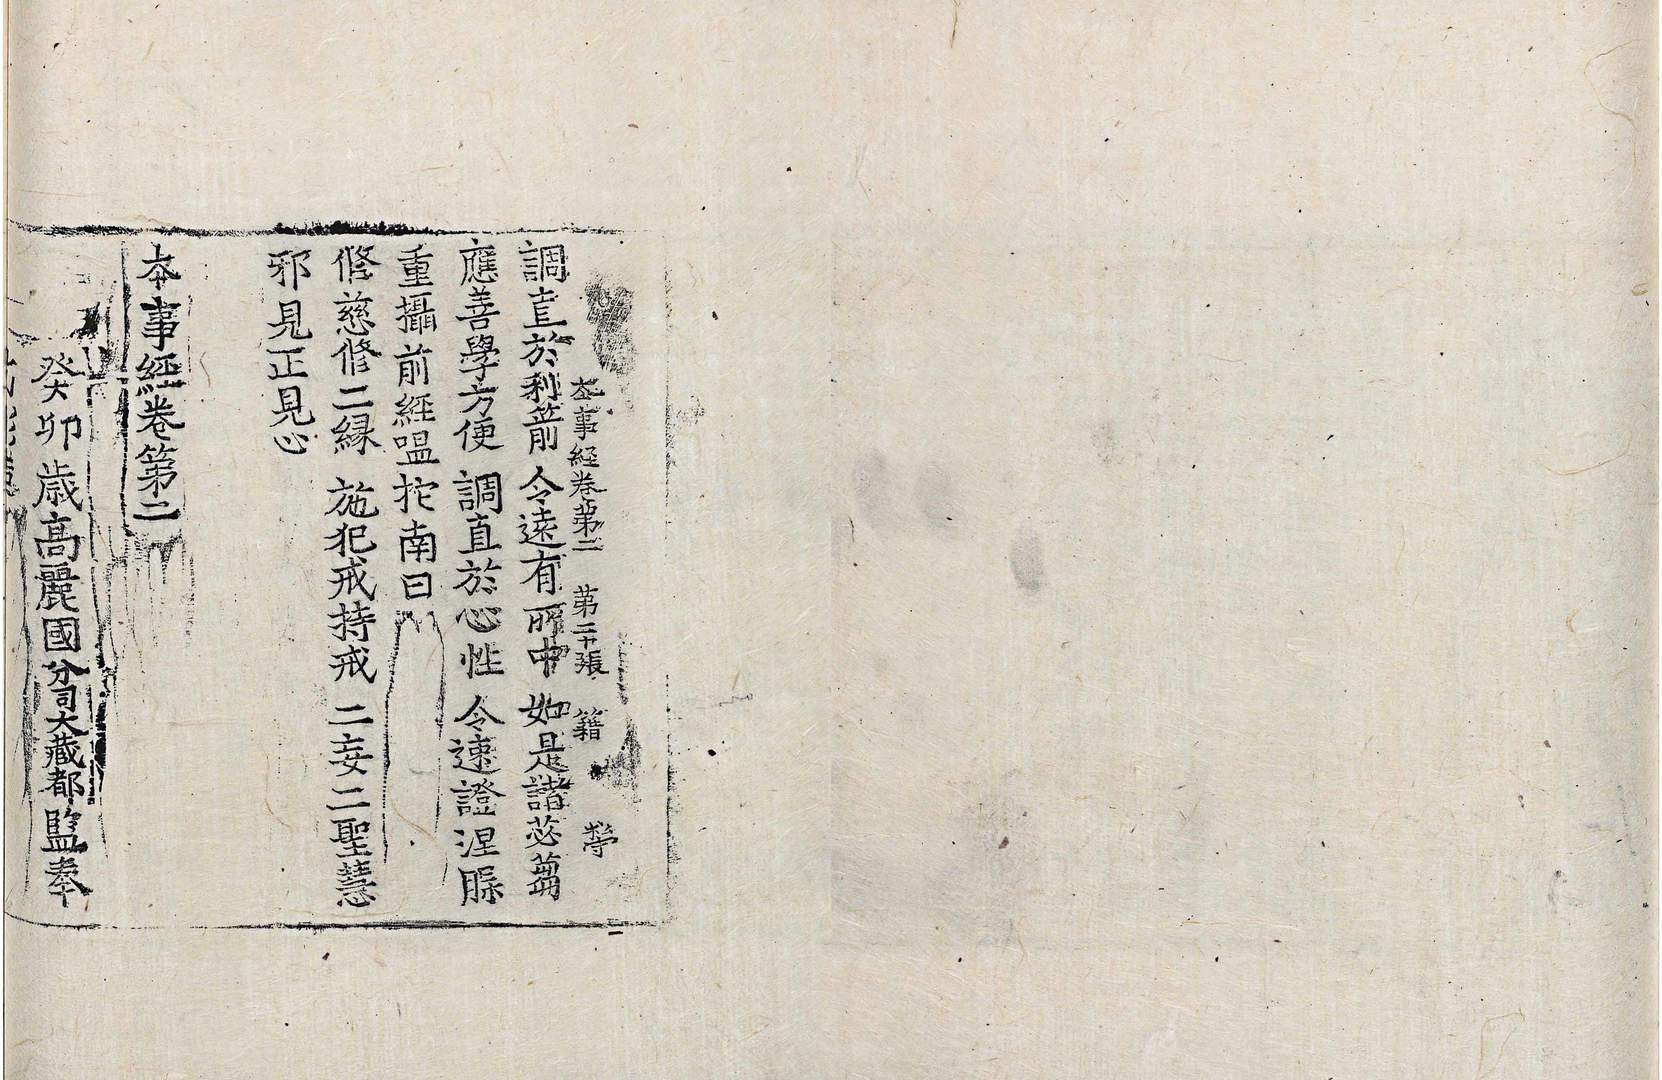 本事經卷第二 第二十張 籍
調直於利箭 令遠有所中 如是諸苾蒭
應善學方便 調直於心性 令速證涅槃
重攝前經嗢拕南曰
脩慈脩二緣 施犯戒持戒 二妄二聖慧
邪見正見心
本事經卷第二
癸卯歳高麗國分司大藏都監奉